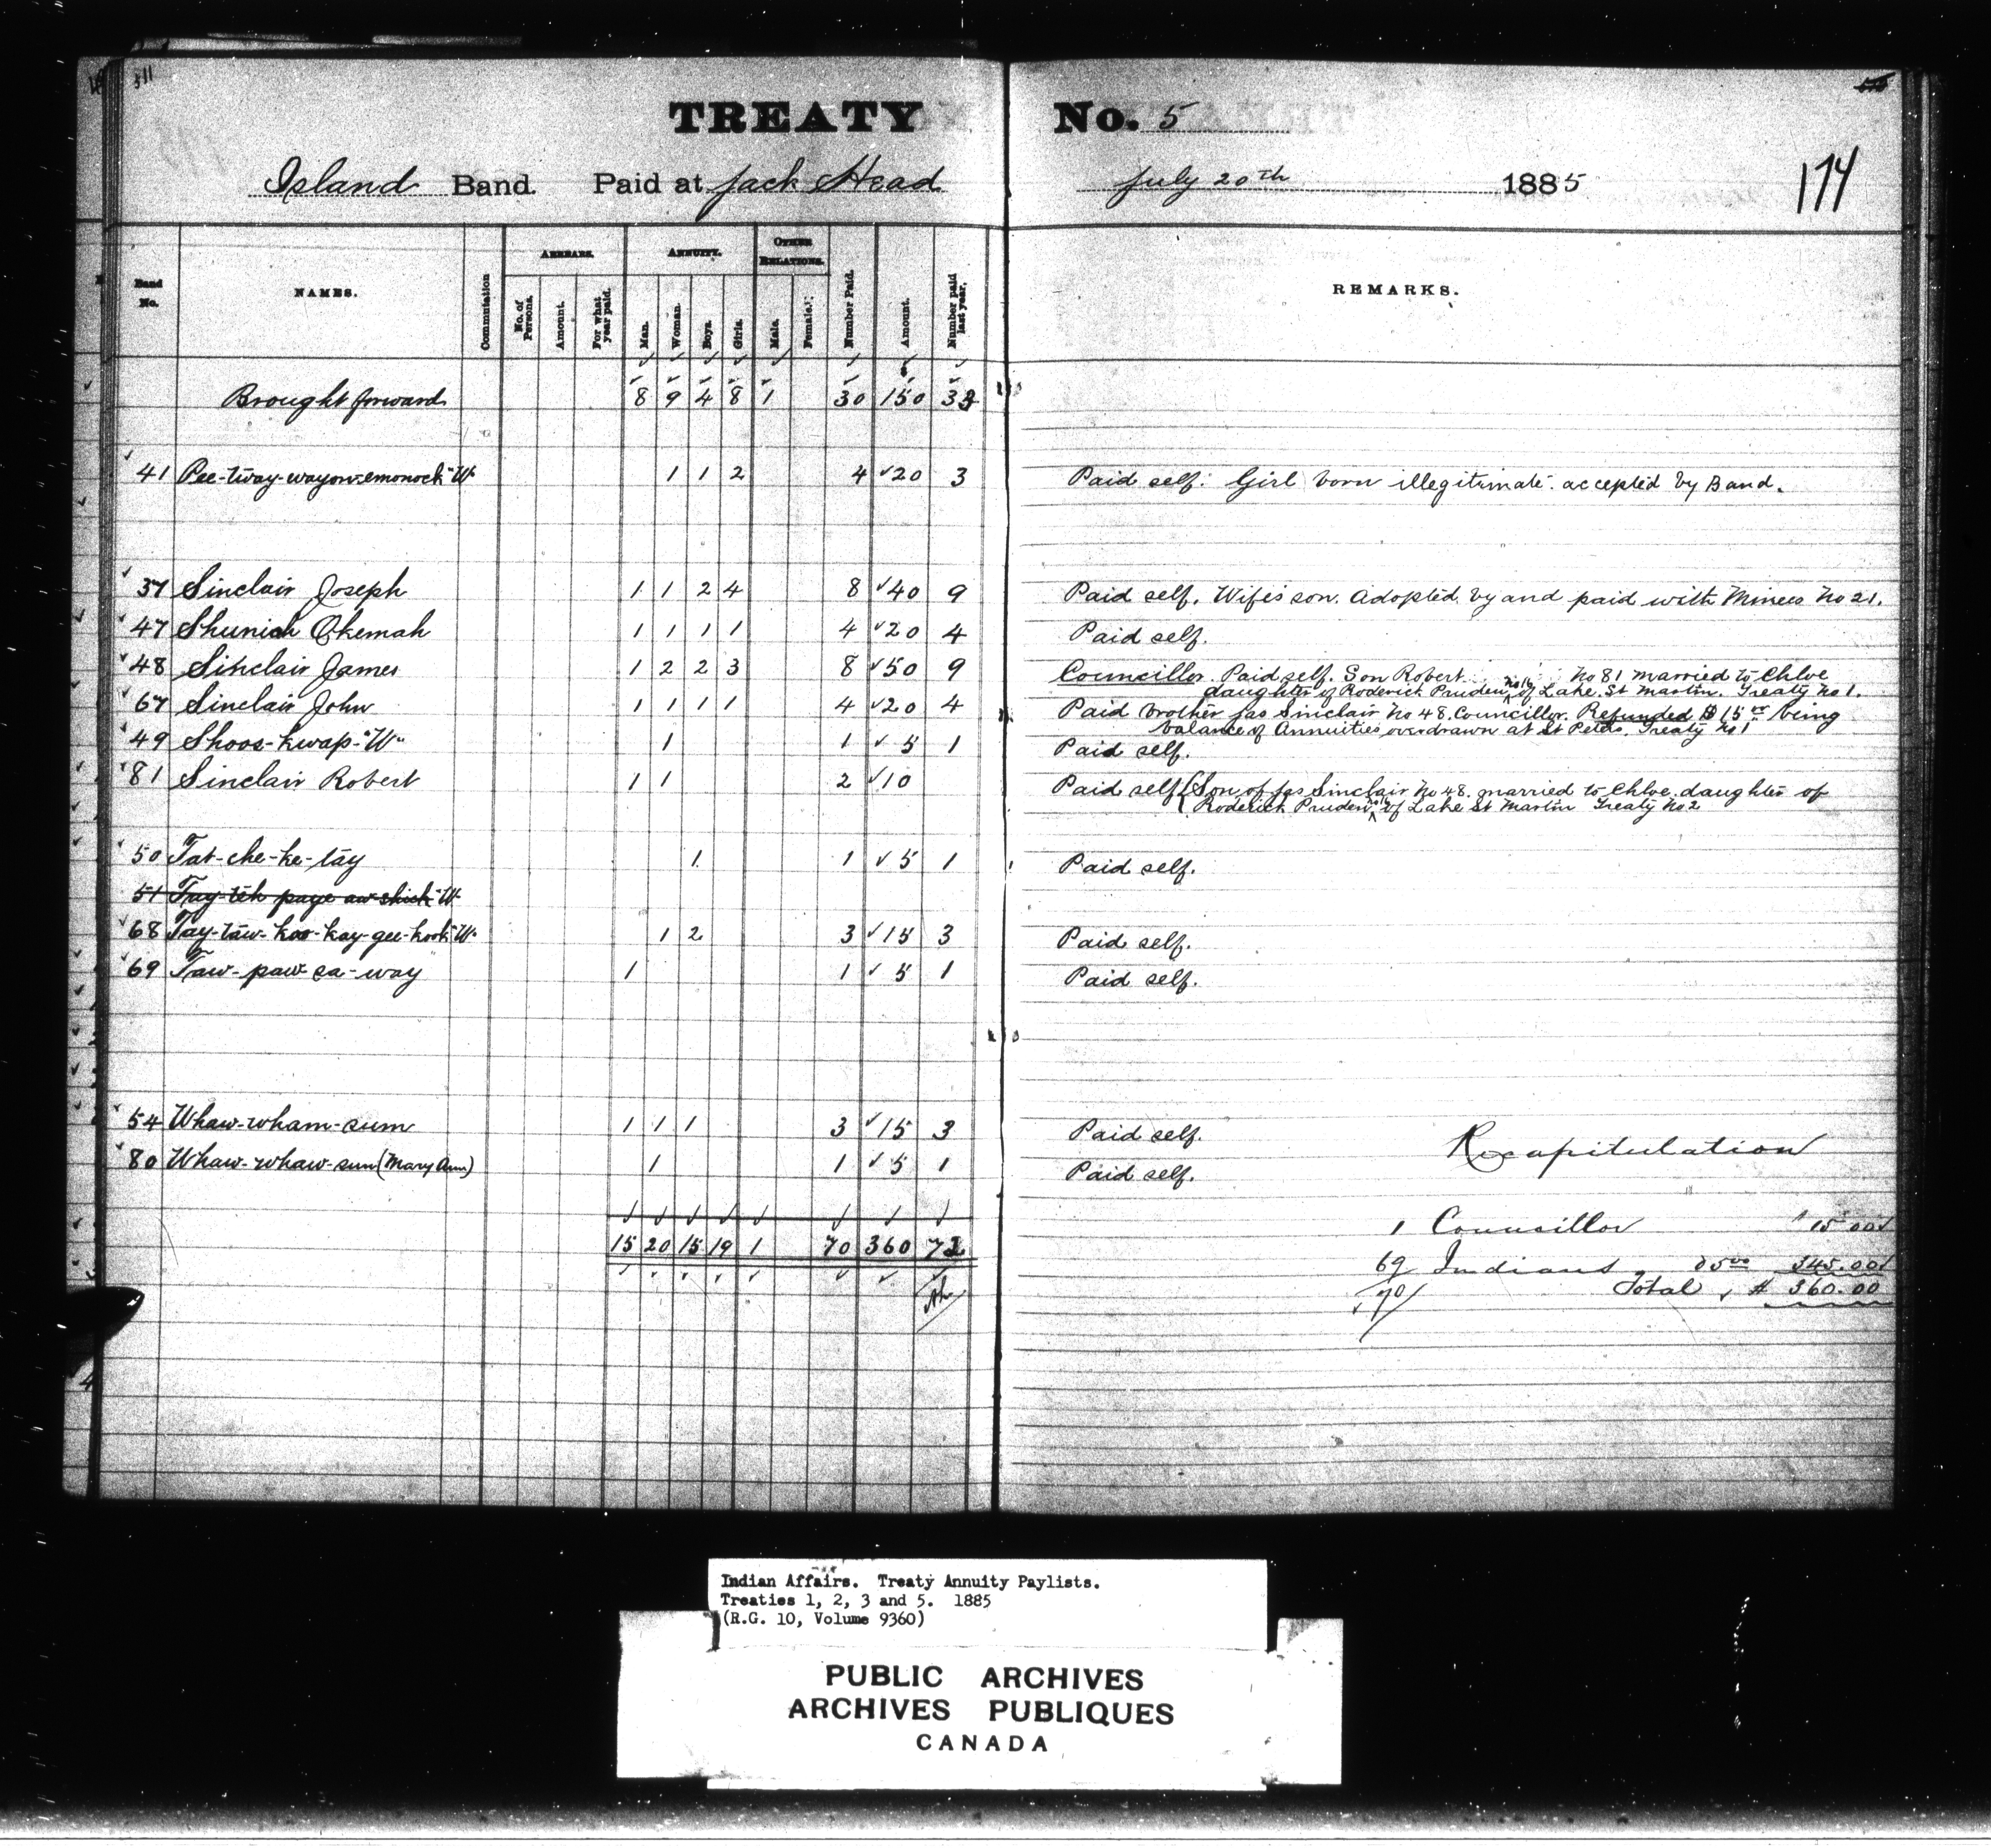 311
TREATY No. 5
174
Island Band. Paid at Jack Head July 20th 1885
Band No. NAMES. Commutation ARREARS. No. of Persons. Amount. For what year paid. ANNUITY. Man. Woman. Boys. Girls. OTHER RELATIONS. Male. Female. Number Paid. Amount. Number paid last year. REMARKS.
Brought forward 8 9 4 8 1 30 150 33
41 Pee-tway-wayow-emonock "W" 1 1 2 4 20 3 Paid self. Girl born illegitimate. accepted by Band.
37 Sinclair Joseph 1 1 2 4 8 40 9 Paid self. Wife's son. Adopted by and paid with Minees No 21.
47 Shuniah Okemah 1 1 1 1 4 20 4 Paid self.
48 Sinclair James 1 2 2 3 8 50 9 Councillor. Paid self. Son Robert No 81 married to Chloe
daughter of Roderick Pruden, No 16 of Lake St Martin. Treaty No 1.
67 Sinclair John 1 1 1 1 4 20 4 Paid brother Jas Sinclair No 48. Councillor. Refunded $15 00 being
balance of Annuities overdrawn at St Peters. Treaty No 1
49 Shoos-kwap-"W" 1 1 5 1 Paid self.
81 Sinclair Robert 1 1 2 10 Paid self (Son of Jas Sinclair No 48. married to Chloe. daughter of
Roderick Pruden No 16 of Lake St Martin Treaty No 2
50 Tat-che-ke-tay 1 1 5 1 Paid self.
51 Tay-teh page aw-shick "W"
68 Tay-taw-koo-kay-gee-kook "W" 1 2 3 15 3 Paid self.
69 Taw-paw-sa-way 1 1 5 1 Paid self.
54 Whaw-wham-sum 1 1 1 3 15 3 Paid self.
Recapitulation
80 Whaw-whaw-sun (Mary Ann) 1 1 5 1 Paid self.
1 Councillor 15 00
15 20 15 19 1 70 360 72
69 Indians @ 5 00 345.00
70 Total $ 360.00
Indian Affairs. Treaty Annuity Paylists.
Treaties 1, 2, 3 and 5. 1885
(R.G. 10, Volume 9360)
PUBLIC ARCHIVES
ARCHIVES PUBLIQUES
CANADA